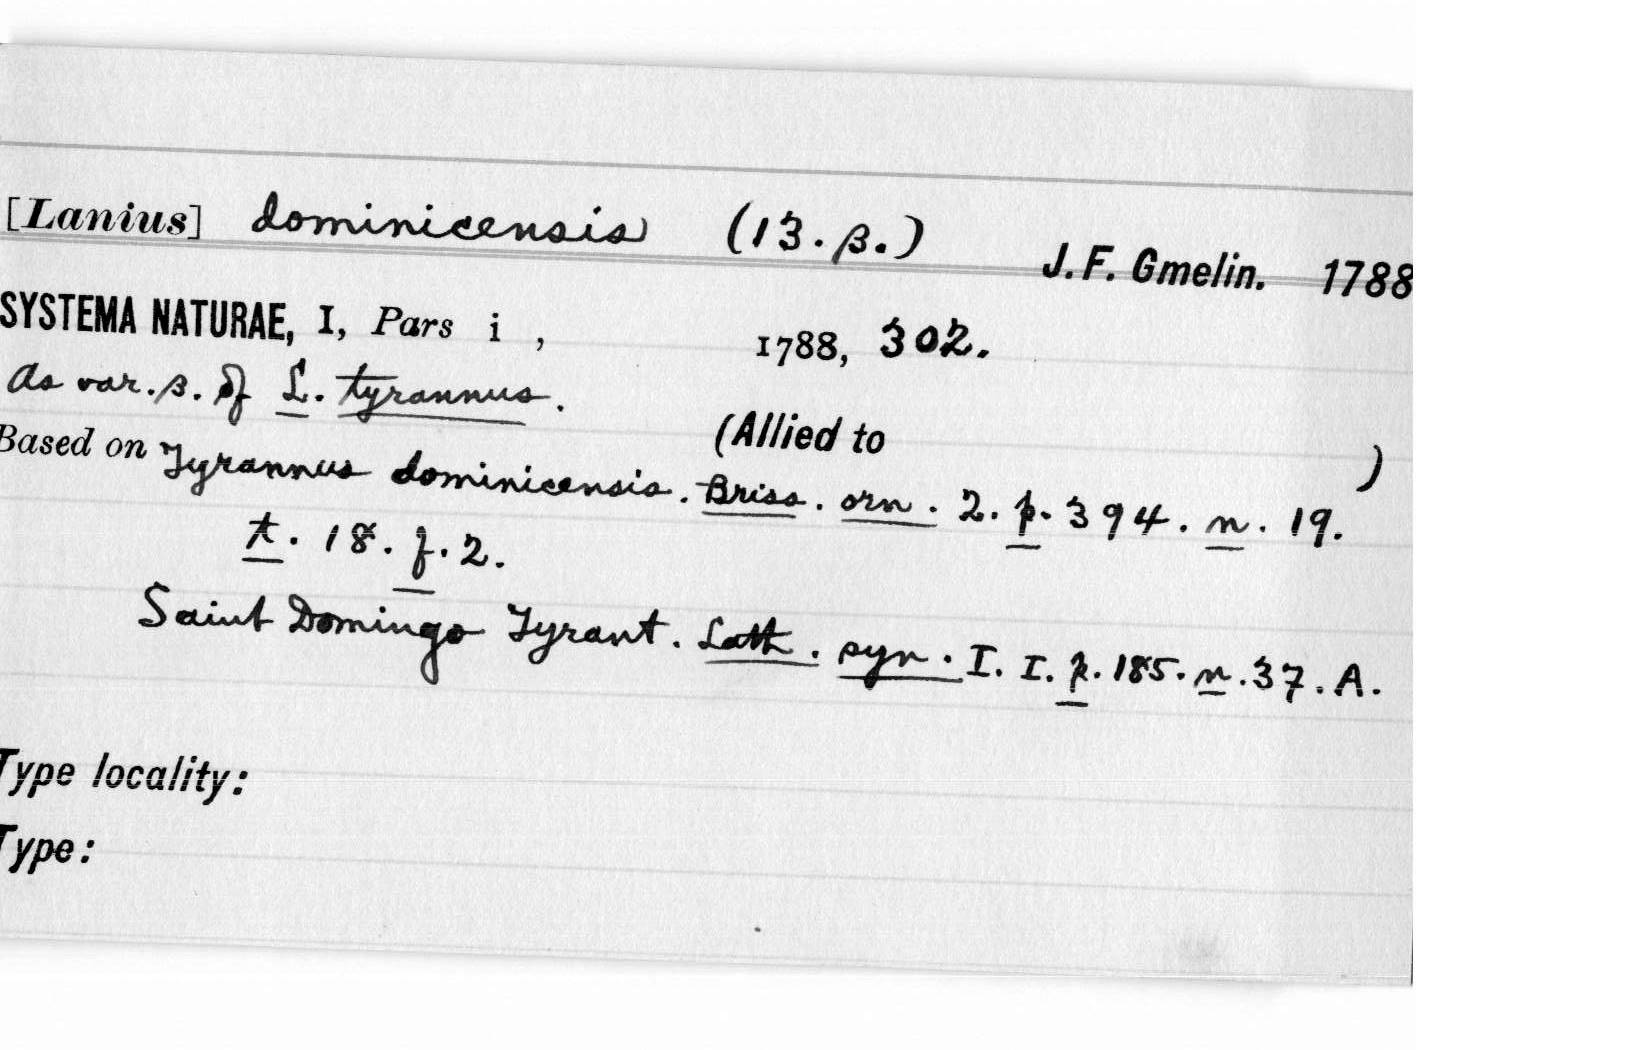 [Lanius] dominicensis (13. β.) J. F. Gmelin. 1788
SYSTEMA NATURAE, I, Pars i , 1788, 302.
As var. β. of L. tyrannus.
(Allied to )
Based on Tyrannus dominicensis. Briss. orn. 2. p. 394. n. 19.
t. 18. f. 2.
Saint Domingo Tyrant. Lath. syn. I. I. p. 185. n. 37. A.
Type locality:
Type: